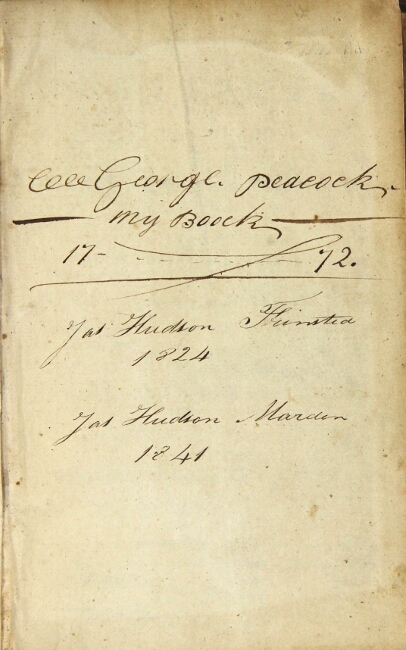 George. Peacock.
my Boock
17- 72.
Jas Hudson Flinsted
1824
Jas Hudson Marden
1841